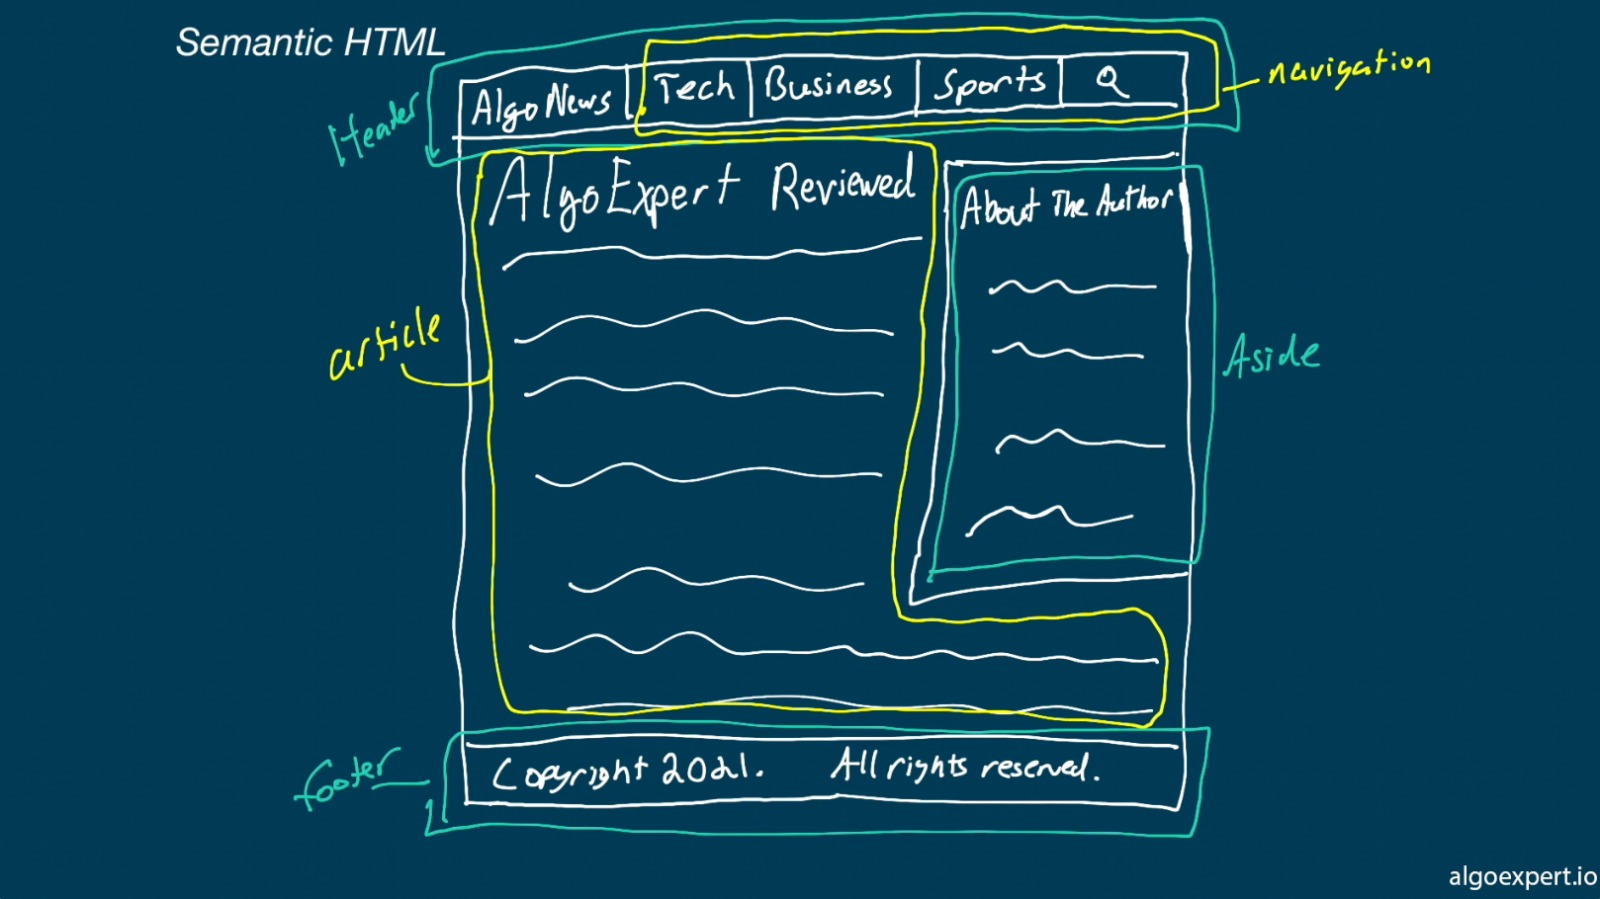 Semantic HTML
Header
AlgoNews Tech Business Sports Q
navigation
AlgoExpert Reviewed
About The Author
article
Aside
footer
Copyright 2021. All rights reserved.
algoexpert.io